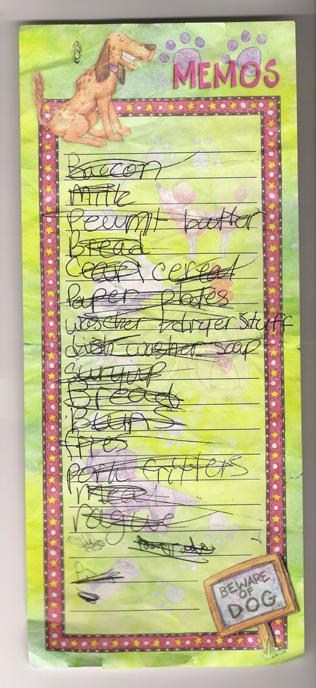 MEMOS
Bacon
Milk
peunut butter
Bread
cereal
Paper plates
washer & dryer stuff
dish washer soap
Bread
Buns
fries
pork fritters
BEWARE
OF
DOG